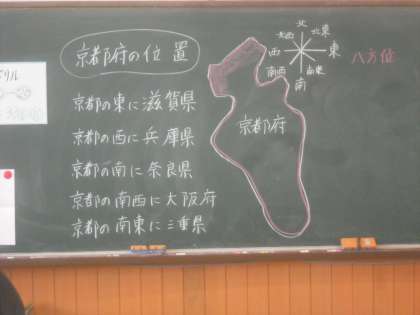 京都府の位置
京都の東に滋賀県
京都の西に兵庫県
京都の南に奈良県
京都の南西に大阪府
京都の南東に三重県
京都府
北
北西
北東
西
東
南西
南東
南
八方位